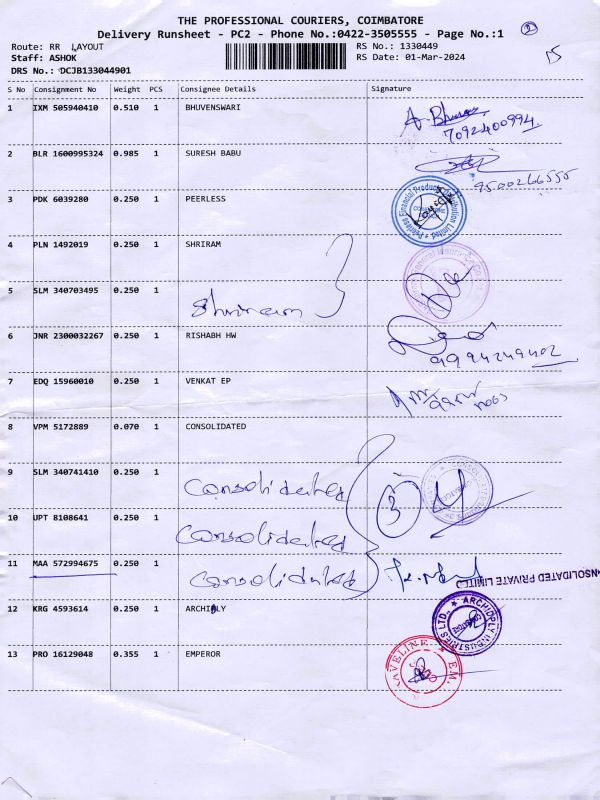 THE PROFESSIONAL COURIERS, COIMBATORE
Delivery Runsheet - PC2 - Phone No.:0422-3505555 - Page No.:1
2
Route: RR LAYOUT
RS No.: 1330449
Staff: ASHOK
RS Date: 01-Mar-2024
DRS No.: DCJB133044901
S No Consignment No Weight PCS Consignee Details Signature
1 IXM 505940410 0.510 1 BHUVENSWARI
7092400994
2 BLR 1600995324 0.985 1 SURESH BABU
9500266555
3 PDK 6039280 0.250 1 PEERLESS
Peerless Financial Products Distribution Limited
4 PLN 1492019 0.250 1 SHRIRAM
5 SLM 340703495 0.250 1
Shriram
6 JNR 2300032267 0.250 1 RISHABH HW
9994249402
7 EDQ 15960010 0.250 1 VENKAT EP
8 VPM 5172889 0.070 1 CONSOLIDATED
9 SLM 340741410 0.250 1
Consolidated
3
10 UPT 8108641 0.250 1
Consolidated
11 MAA 572994675 0.250 1
Consolidated
ONSOLIDATED PRIVATE LIMITED
12 KRG 4593614 0.250 1 ARCHIPLY
ARCHIDPLY INDUSTRIES LTD.
13 PRO 16129048 0.355 1 EMPEROR